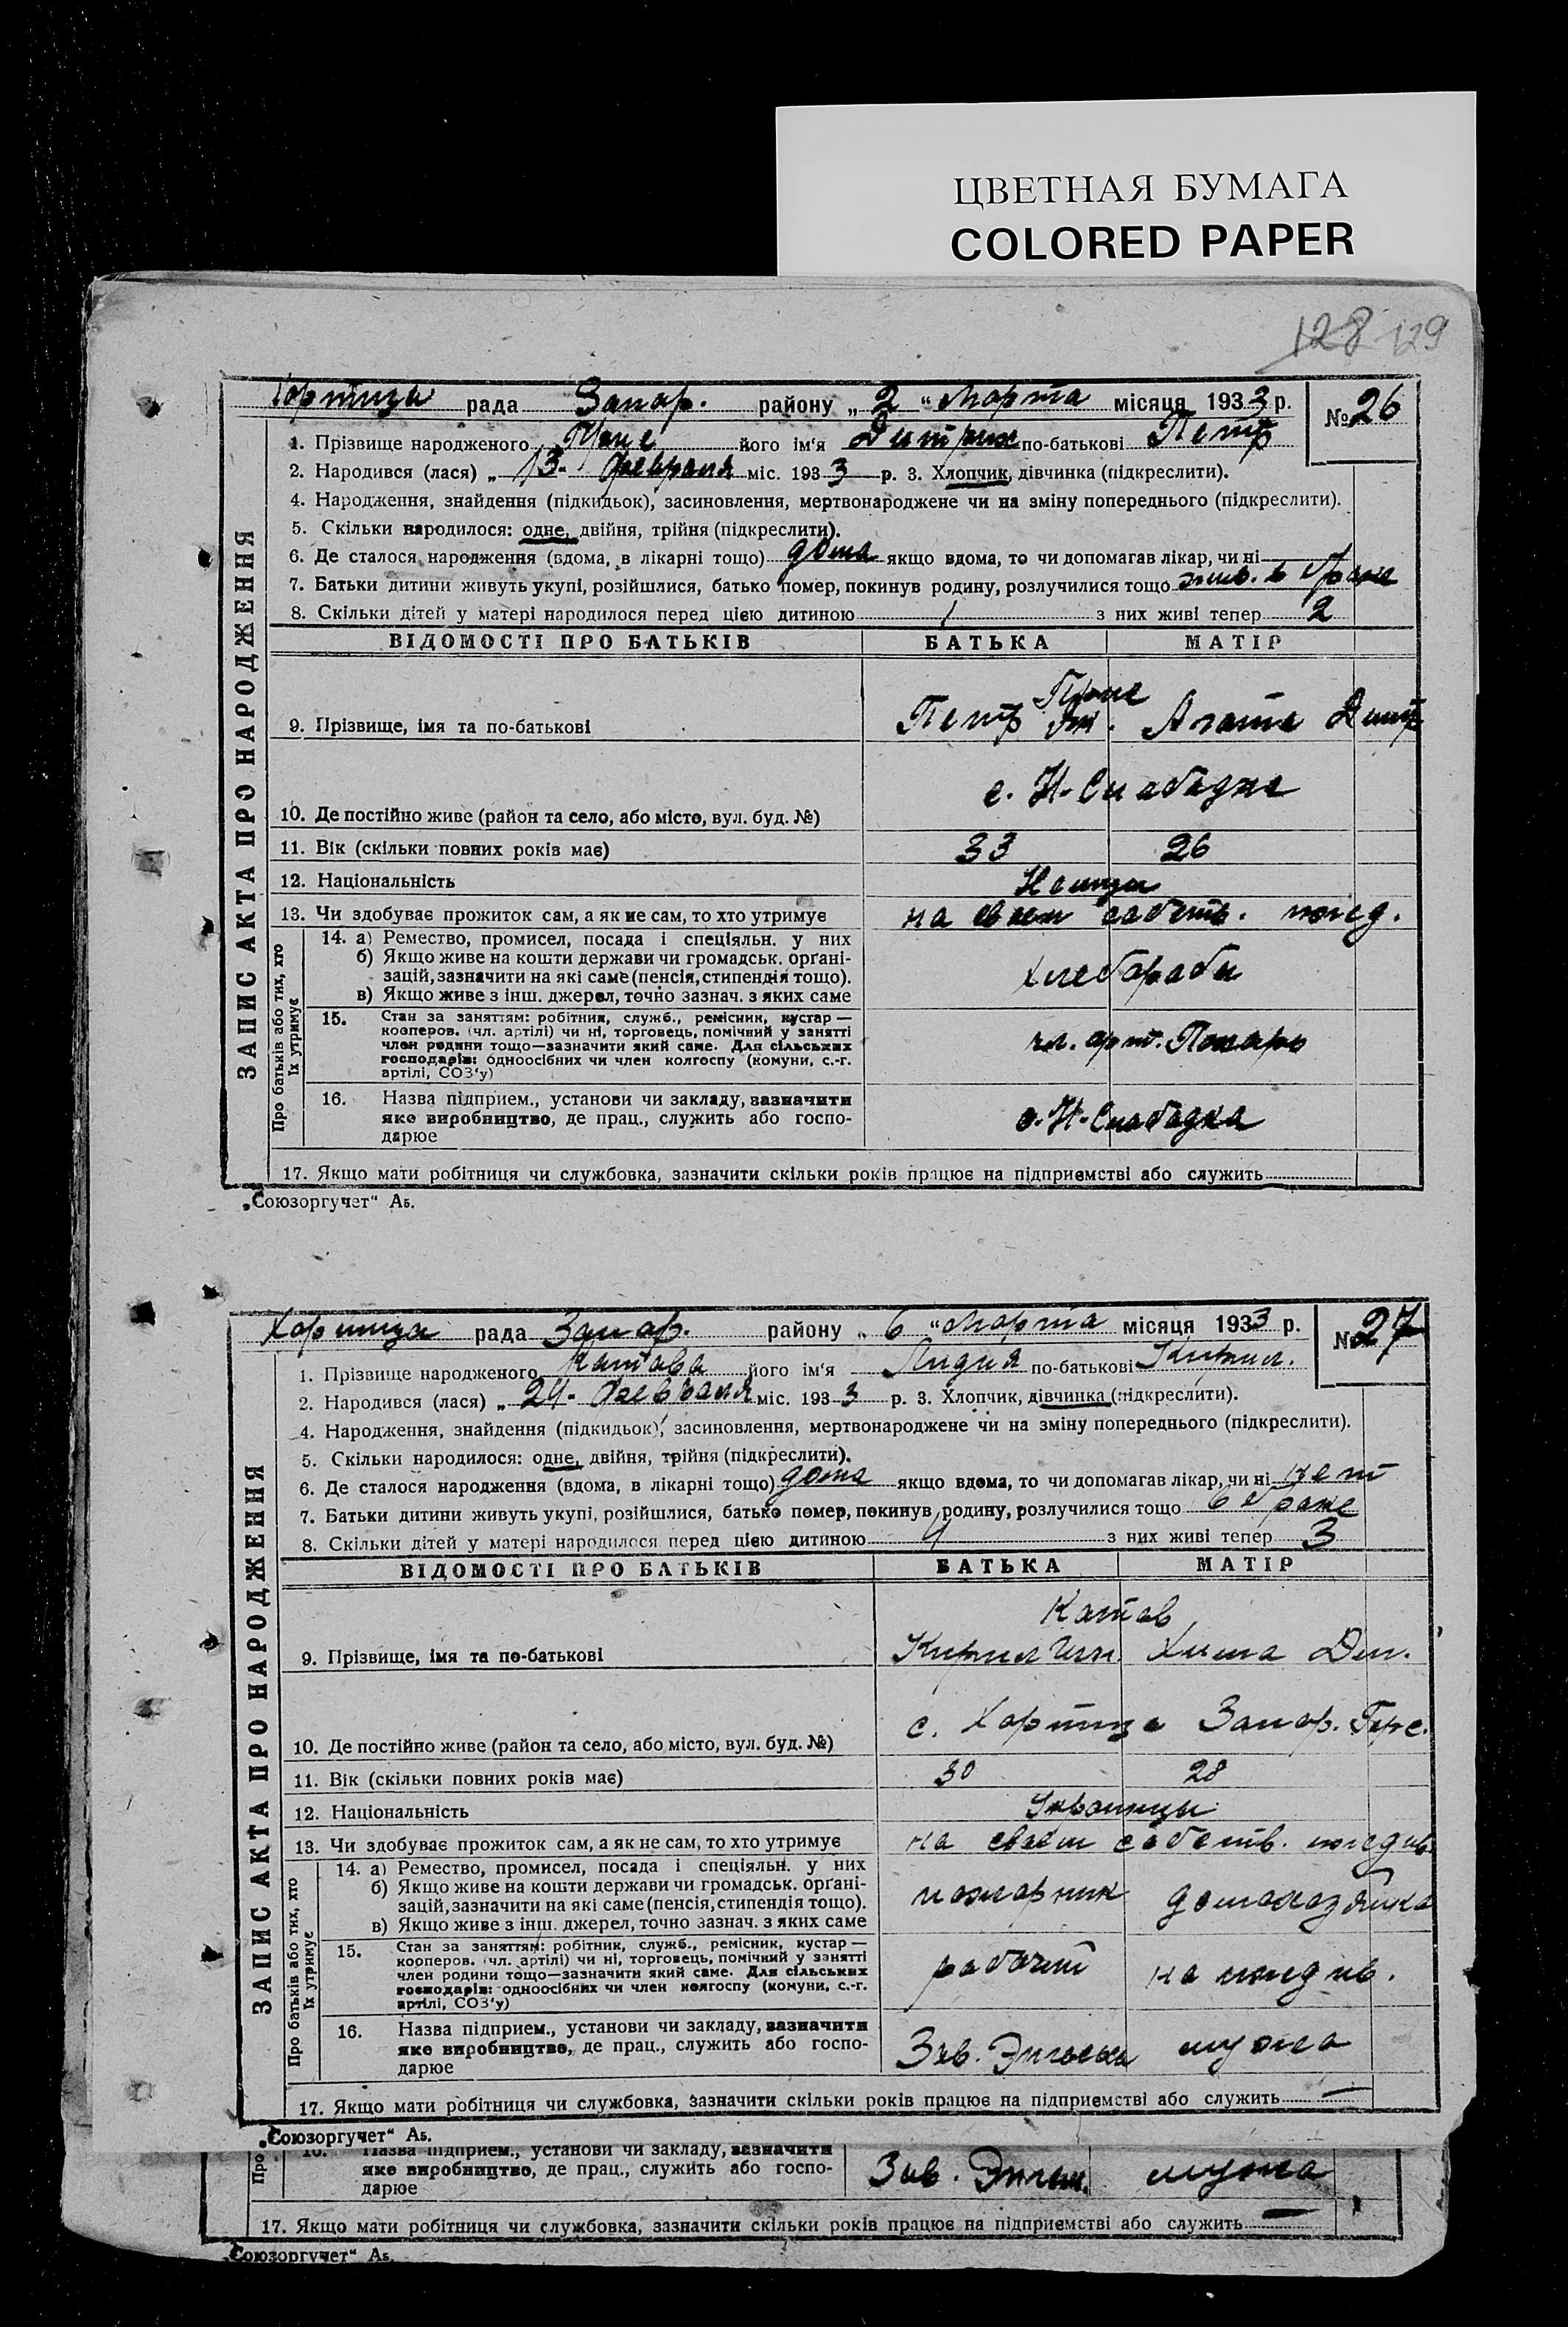 ЦВЕТНАЯ БУМАГА
COLORED PAPER
128 129
Хортица рада Запор. району „ 2 “ Марта місяця 1933 р. № 26
1. Прізвище народженого його ім'я Дитрих по-батькові Петр
2. Народився (лася) „ 13- февраля міс. 1933 р. 3. Хлопчик, дівчинка (підкреслити).
4. Народження, знайдення (підкидьок), засиновлення, мертвонароджене чи на зміну попереднього (підкреслити).
5. Скільки народилося: одне, двійня, трійня (підкреслити).
6. Де сталося народження (вдома, в лікарні тощо) дома якщо вдома, то чи допомагав лікар, чи ні
7. Батьки дитини живуть укупі, розійшлися, батько помер, покинув родину, розлучилися тощо жив. в браке
8. Скільки дітей у матері народилося перед цією дитиною 1 з них живі тепер 2
ВІДОМОСТІ ПРО БАТЬКІВ БАТЬКА МАТІР
9. Прізвище, імя та по-батькові Петр Агата Дитр
10. Де постійно живе (район та село, або місто, вул. буд. №) с. Н-Слабадка
11. Вік (скільки повних років має) 33 26
12. Національність Немцы
13. Чи здобуває прожиток сам, а як не сам, то хто утримує на своем собств. ижд.
14. а) Ремество, промисел, посада і спеціяльн. у них
б) Якщо живе на кошти держави чи громадськ. орґані-
зацій, зазначити на які саме (пенсія, стипендія тощо).
в) Якщо живе з інш. джерел, точно зазнач. з яких саме
хлеборобы
15. Стан за заняттям: робітник, служб., ремісник, кустар —
кооперов. (чл. артілі) чи ні, торговець, помічний у занятті
член родини тощо—зазначити який саме. Для сільських
господарів: одноосібних чи член колгоспу (комуни, с.-г.
артілі, СОЗ'у)
чл. арт. Пахарь
16. Назва підприєм., установи чи закладу, вазначити
яке виробництво, де прац., служить або госпо-
дарює
с. Н-Слабадка
17. Якщо мати робітниця чи службовка, зазначити скільки років працює на підприємстві або служить
„Союзоргучет“ Аб.
ЗАПИС АКТА ПРО НАРОДЖЕННЯ
Про батьків або тих, хто
їх утримує
Хортица рада Запор. району „ 6 “ Марта місяця 1933 р. № 27
1. Прізвище народженого Катова його ім'я Лидия по-батькові Кирил.
2. Народився (лася) „ 24- февраля міс. 1933 р. 3. Хлопчик, дівчинка (підкреслити).
4. Народження, знайдення (підкидьок), засиновлення, мертвонароджене чи на зміну попереднього (підкреслити).
5. Скільки народилося: одне, двійня, трійня (підкреслити).
6. Де сталося народження (вдома, в лікарні тощо) дома якщо вдома, то чи допомагав лікар, чи ні нет
7. Батьки дитини живуть укупі, розійшлися, батько помер, покинув родину, розлучилися тощо в браке
8. Скільки дітей у матері народилося перед цією дитиною 4 з них живі тепер 3
ВІДОМОСТІ ПРО БАТЬКІВ БАТЬКА МАТІР
Катов
9. Прізвище, імя та по-батькові Кирил
10. Де постійно живе (район та село, або місто, вул. буд. №) с. Хортица Запор.
11. Вік (скільки повних років має) 30 28
12. Національність Украинцы
13. Чи здобуває прожиток сам, а як не сам, то хто утримує на своем собств. иждив.
14. а) Ремество, промисел, посада і спеціяльн. у них
б) Якщо живе на кошти держави чи громадськ. орґані-
зацій, зазначити на які саме (пенсія, стипендія тощо).
в) Якщо живе з інш. джерел, точно зазнач. з яких саме
пожарник домохозяйка
15. Стан за заняттям: робітник, служб., ремісник, кустар —
кооперов. (чл. артілі) чи ні, торговець, помічний у занятті
член родини тощо—зазначити який саме. Для сільських
господарів: одноосібних чи член колгоспу (комуни, с.-г.
артілі, СОЗ'у)
рабочий на иждив.
16. Назва підприєм., установи чи закладу, вазначити
яке виробництво, де прац., служить або госпо-
дарює
Зав. Энгельса мужа
17. Якщо мати робітниця чи службовка, зазначити скільки років працює на підприємстві або служить —
„Союзоргучет“ Аб.
ЗАПИС АКТА ПРО НАРОДЖЕННЯ
Про батьків або тих, хто
їх утримує
16. Назва підприєм., установи чи закладу, вазначити
яке виробництво, де прац., служить або госпо-
дарює
Зав. Энгельс. мужа
17. Якщо мати робітниця чи службовка, зазначити скільки років працює на підприємстві або служить —
„Союзоргучет“ Аб.
Про